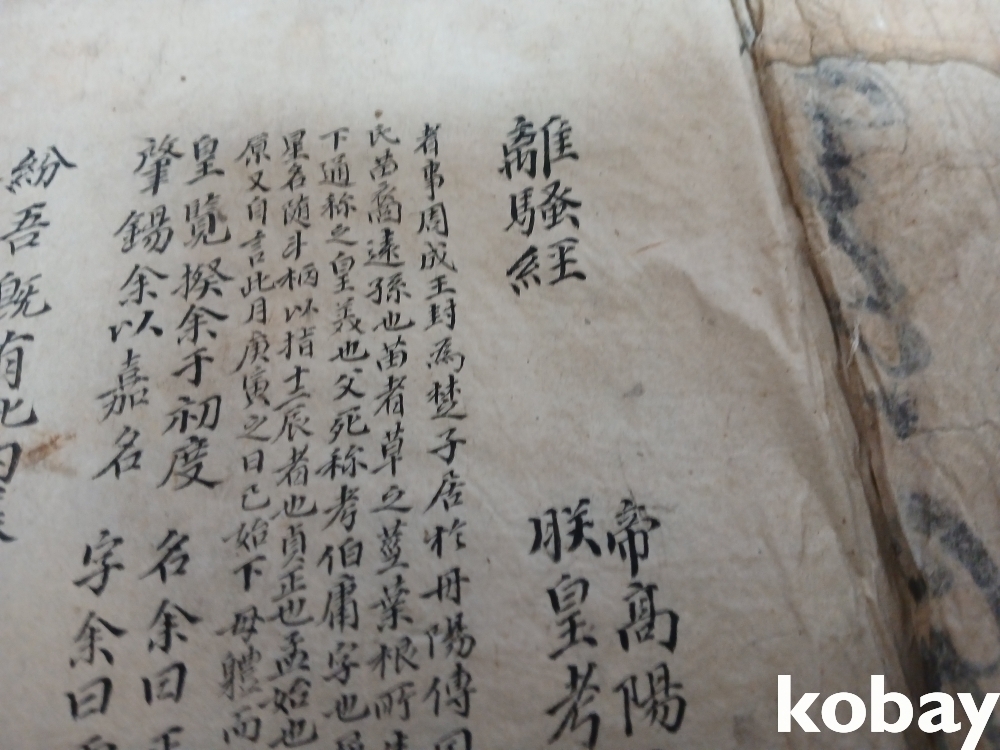 離騷經
帝高陽
朕皇考
者事周成王封為楚子居於丹陽傳國
氏苗裔遠孫也苗者草之莖葉根所生
下通称之皇義也父死称考伯庸字也
星名随斗柄以指十二辰者也貞正也孟始也
原又自言此月庚寅之日已始下母體而
皇覽揆余于初度
名余曰正
肇錫余以嘉名
字余曰
紛吾既有此内
kobay